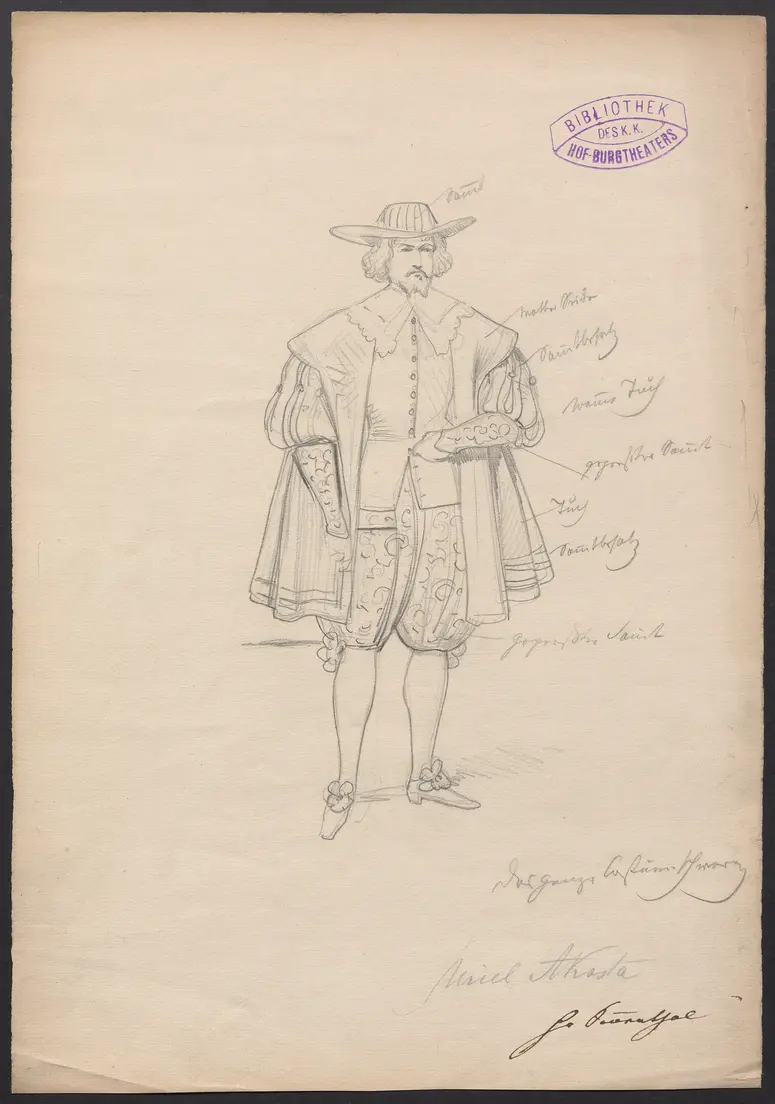 BIBLIOTHEK
DES K. K.
HOF-BURGTHEATERS
Samt
matte Seide
Samtbesatz
Wams Tuch
gepreßter Samt
Tuch
Samtbesatz
gepreßter Samt
Das ganze Costüm schwarz
Uriel Akosta
Hr Sonnenthal